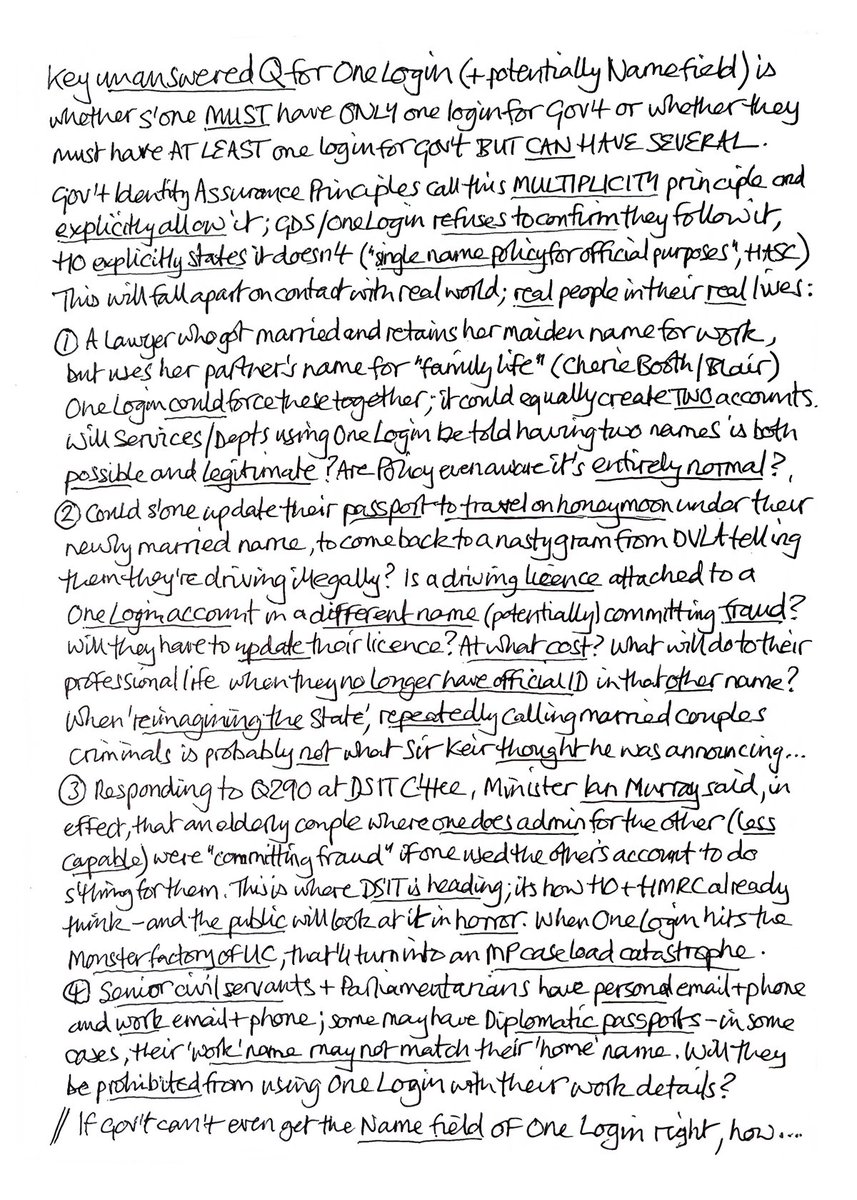 Key unanswered Q for One Login (+ potentially Name field) is
whether s'one MUST have ONLY one login for Gov't or whether they
must have AT LEAST one login for Gov't BUT CAN HAVE SEVERAL.
Gov't Identity Assurance Principles call this MULTIPLICITY principle and
explicitly allow it; GDS/One Login refuses to confirm they follow it,
HO explicitly states it doesn't ("single name policy for official purposes", HASC)
This will fall apart on contact with real world; real people in their real lives:
① A Lawyer who got married and retains her maiden name for work,
but uses her partner's name for "family life" (Cherie Booth/Blair)
One Login could force these together; it could equally create TWO accounts.
Will Services/Depts using One Login be told having two names is both
possible and legitimate? Are Policy even aware it's entirely normal?
② Could s'one update their passport to travel on honeymoon under their
newly married name, to come back to a nastygram from DVLA telling
them they're driving illegally? Is a driving licence attached to a
One Login account in a different name (potentially) committing fraud?
Will they have to update their licence? At what cost? What will do to their
professional life when they no longer have official ID in that other name?
When 'reimagining the State', repeatedly calling married couples
criminals is probably not what Sir Keir thought he was announcing...
③ Responding to Q290 at DSIT C'ttee, Minister Ian Murray said, in
effect, that an elderly couple where one does admin for the other (less
capable) were "committing fraud" if one used the other's account to do
s'thing for them. This is where DSIT is heading; its how HO + HMRC already
think – and the public will look at it in horror. When One Login hits the
Monster factory of UC, that'll turn into an MP case load catastrophe.
④ Senior civil servants + Parliamentarians have personal email + phone
and work email + phone; some may have Diplomatic passports – in some
cases, their 'work' name may not match their 'home' name. Will they
be prohibited from using One Login with their work details?
// If Gov't can't even get the Name field of One Login right, how....